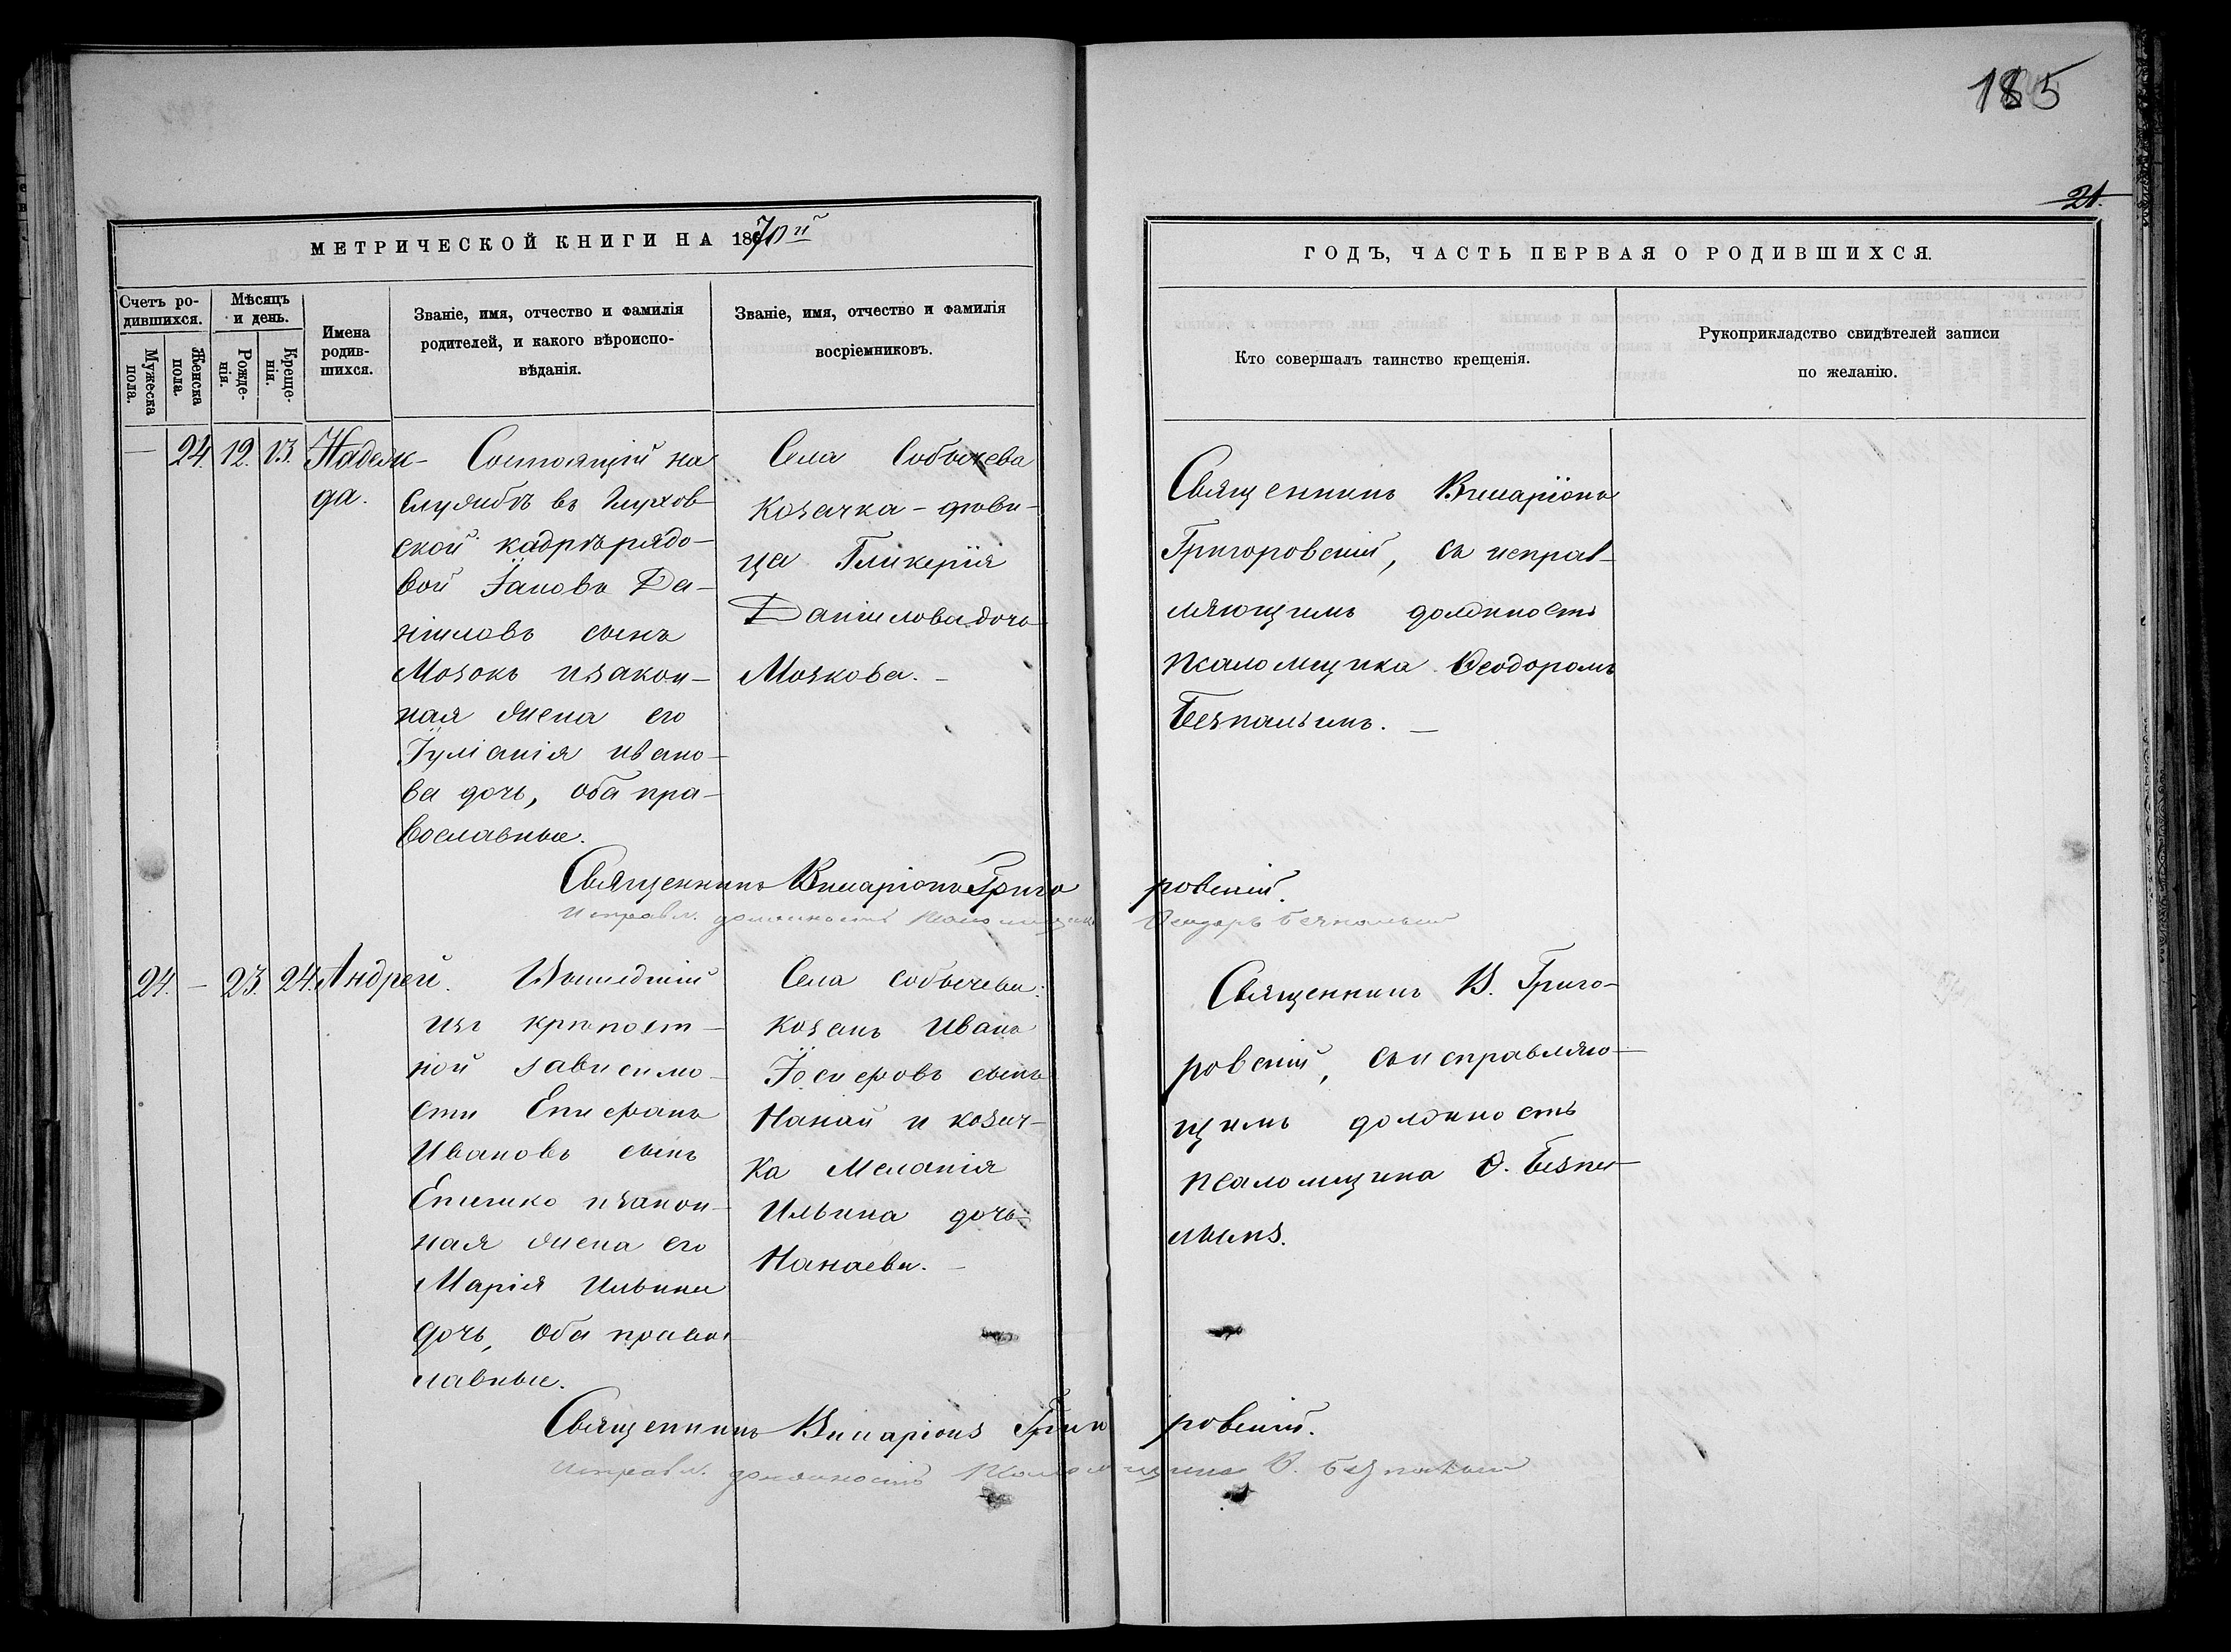 185
21.
МЕТРИЧЕСКОЙ КНИГИ НА 1870й
ГОДЪ, ЧАСТЬ ПЕРВАЯ О РОДИВШИХСЯ.
Счетъ ро-
дившихся.
Мужеска
пола.
Женска
пола
Мѣсяцъ
и день.
Рожде-
нія.
Креще-
нія.
Имена
родив-
шихся.
Званіе, имя, отчество и фамилія
родителей, и какого вѣроиспо-
вѣданія.
Званіе, имя, отчество и фамилія
восріемниковъ.
Кто совершалъ таинство крещенія.
Рукоприкладство свидѣтелей записи
по желанію.
— 24. 12. 13.
Надеж-
да.
Состоящій на
службѣ въ Глухов-
ской кадрѣ рядо-
вой Іаковъ Да-
ніиловъ сынъ
Мозокъ и закон-
ная жена его
Іуліанія Ивано-
ва дочь, оба пра-
вославные.
Села Собычева
козачка-дѣви-
ца Гликерія
Даніилова дочь
Мозкова. —
Священникъ Виларіонъ
Григоровскій, съ исправ-
ляющимъ должность
псаломщика Ѳеодоромъ
Безпалымъ. —
Священникъ Виларіонъ Григоровскій.
Исправл. должность псаломщика Ѳеодоръ Безпалый
24. — 23. 24.
Андрей.
Вышедшій
изъ крѣпост-
ной зависимо-
сти Епифанъ
Ивановъ сынъ
и закон-
ная жена его
Марія Ильина
дочь, оба правос-
лавные.
Села Собычева:
козакъ Иванъ
Іосифовъ сынъ
Нанай и козач-
ка Меланія
Ильина дочь
Нанаева. —
Священникъ В. Григо-
ровскій, съ исправляю-
щимъ должность
псаломщика Ѳ. Безпа-
лымъ.
Священникъ Виларіонъ Григоровскій.
Исправл. должность псаломщика Ѳ. Безпалый